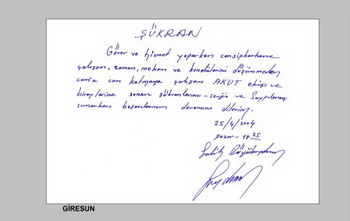 ŞÜKRAN
Görev ve hizmet yaparken cansiperhane
çalışan, zaman, mekan ve kendilerini düşünmeden
cana can katmaya çalışan AKUT ekip ve
bireylerine sonsuz şükranlarımı sevgi ve Saygılarımı
sunarken başarılarının devamını dilerim.
25/4/2004
pazar - 18.25
GİRESUN